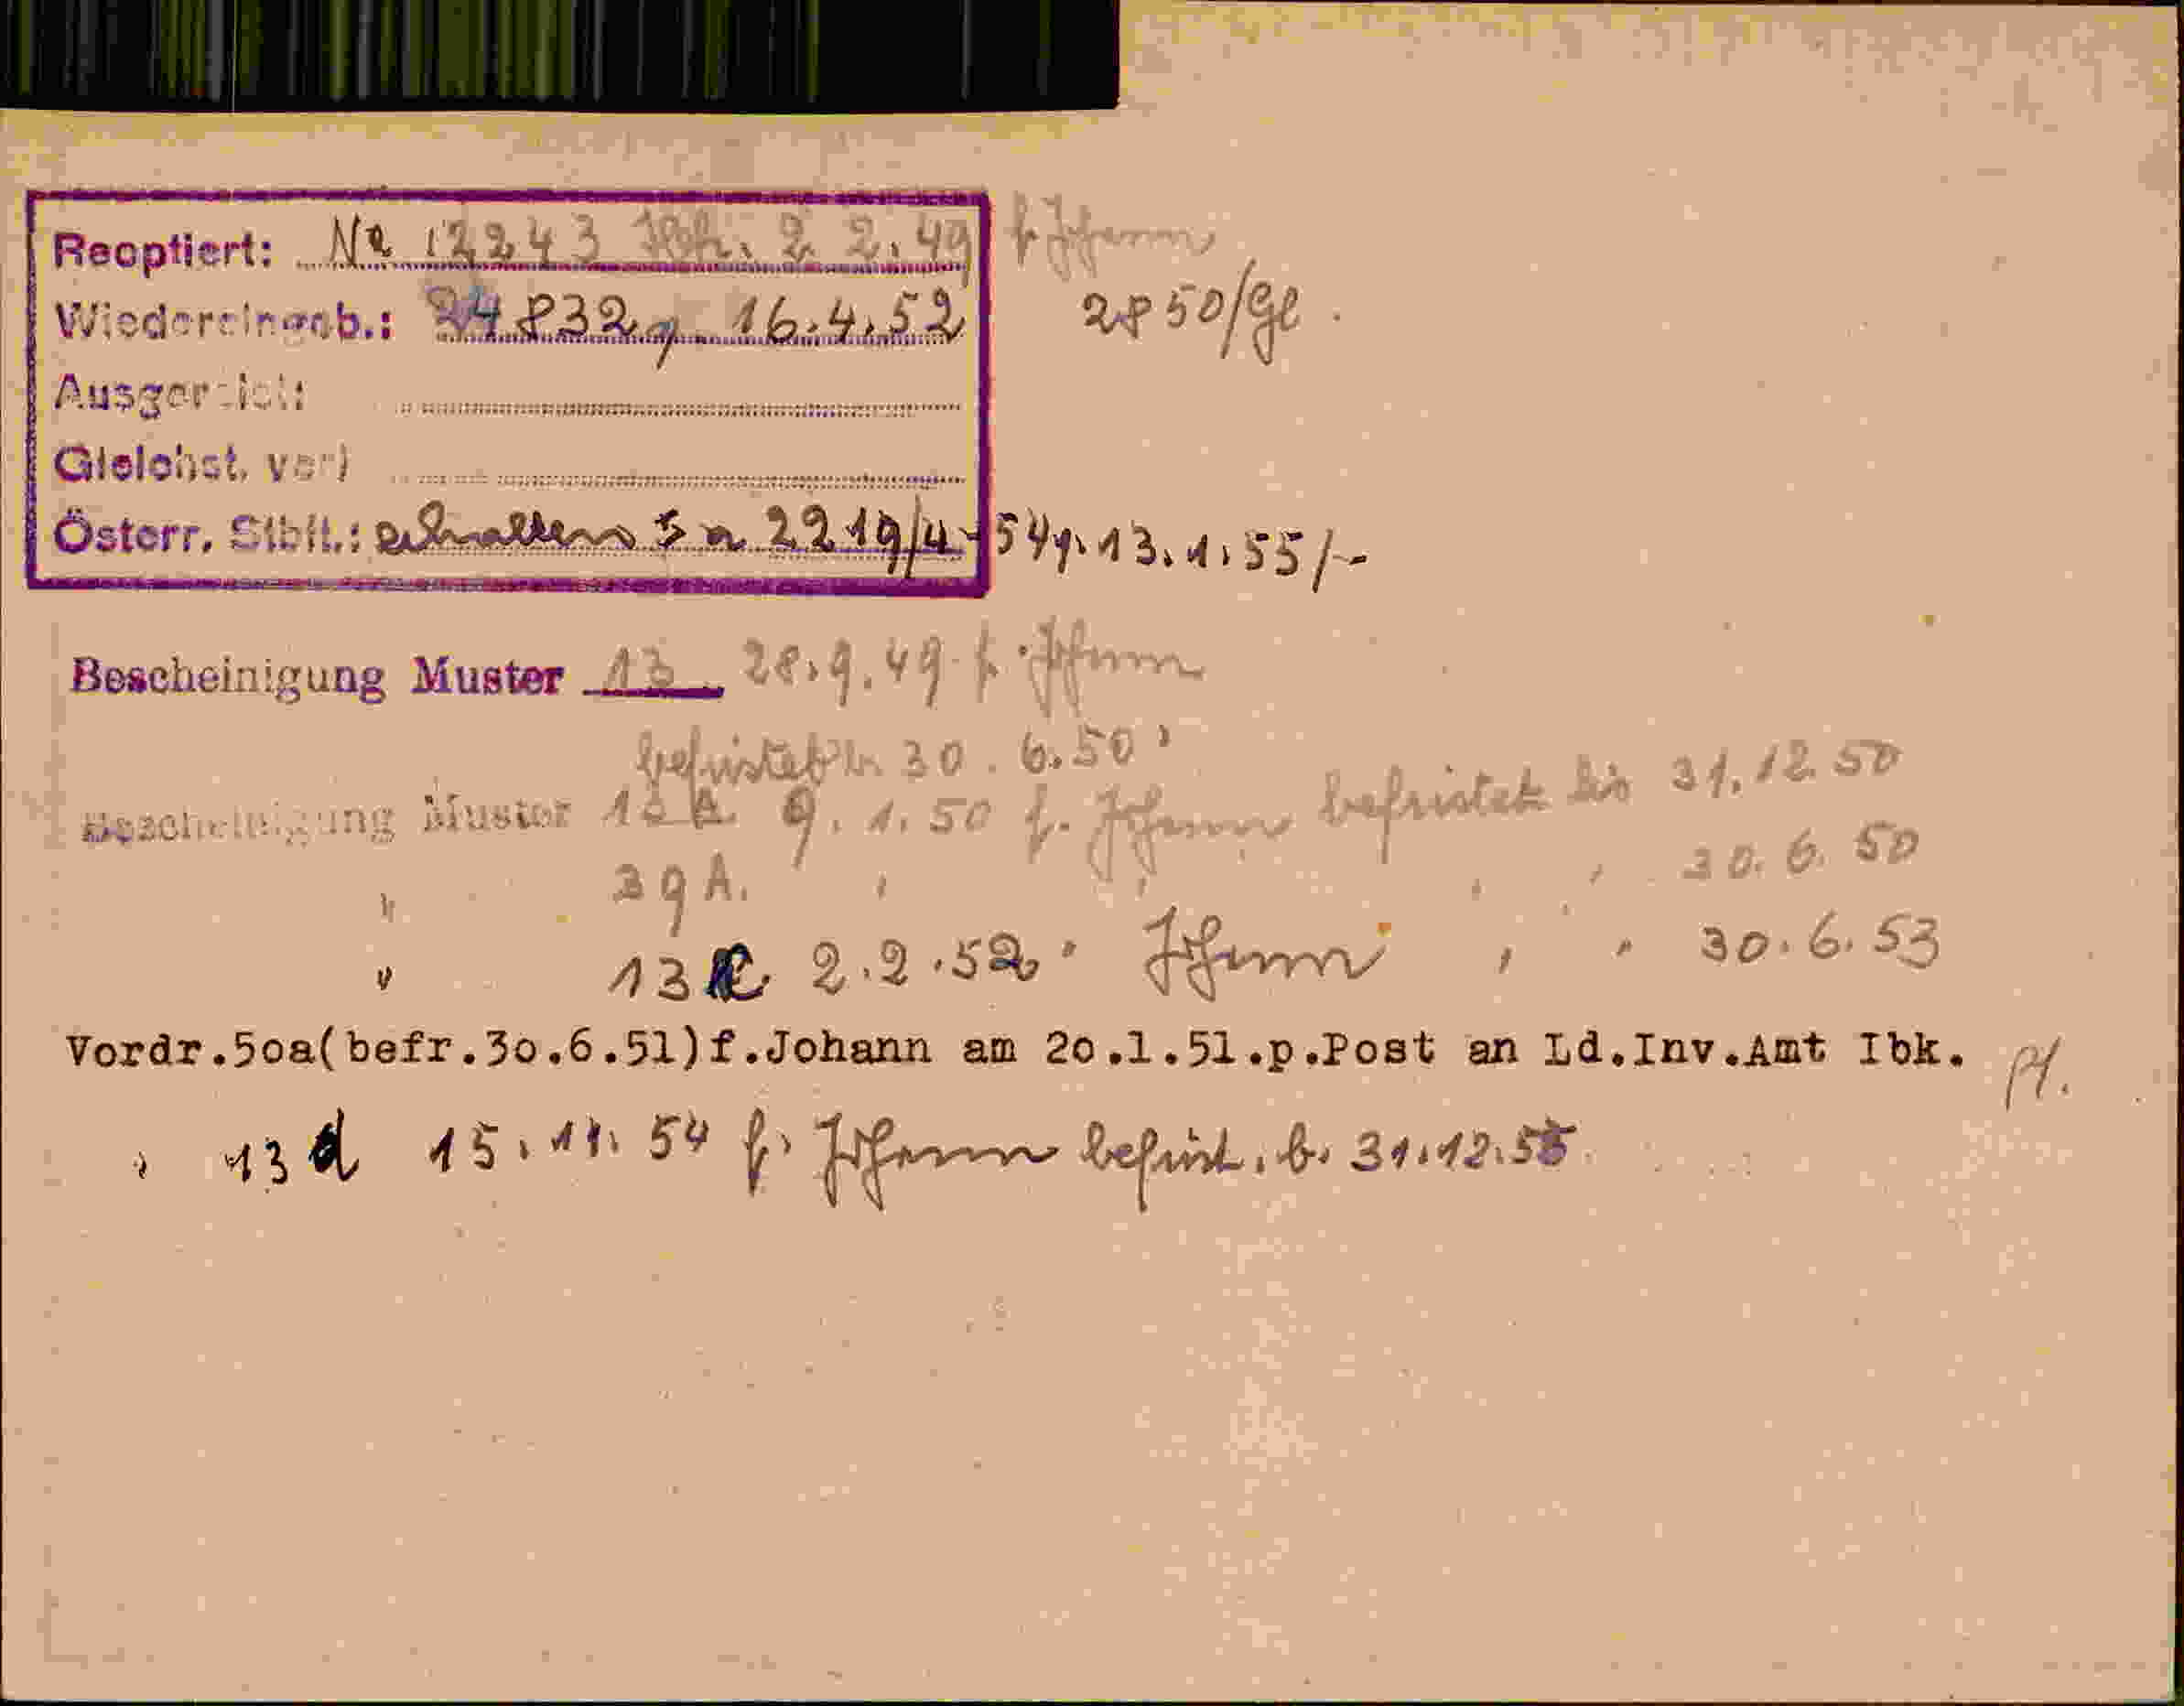 Reoptiert: Na 12243 Ibk. 2 2. 49 f Johann
Wiedereingeb.: 24832 g 16.4.52 2850/Gl.
Ausgereist:
Gleichst. verl
Österr. Stbft.: erhalten 5 a 2219/4-54 g. 13.1.55/--
Bescheinigung Muster 13 28.9.49 f. Johann
befristet bis 30. 6. 50
Bescheinigung Muster 13 a. 9. 1. 50 f. Johann befristet bis 31.12.50
" 39 A. " " " " 30. 6. 50
" 13 c. 2.2.52 " Johann " " 30.6.53
Vordr.5oa(befr.3o.6.51)f.Johann am 2o.1.51.p.Post an Ld.Inv.Amt Ibk.
" 13 d 15. 11. 54 f. Johann befrist. b. 31.12.55